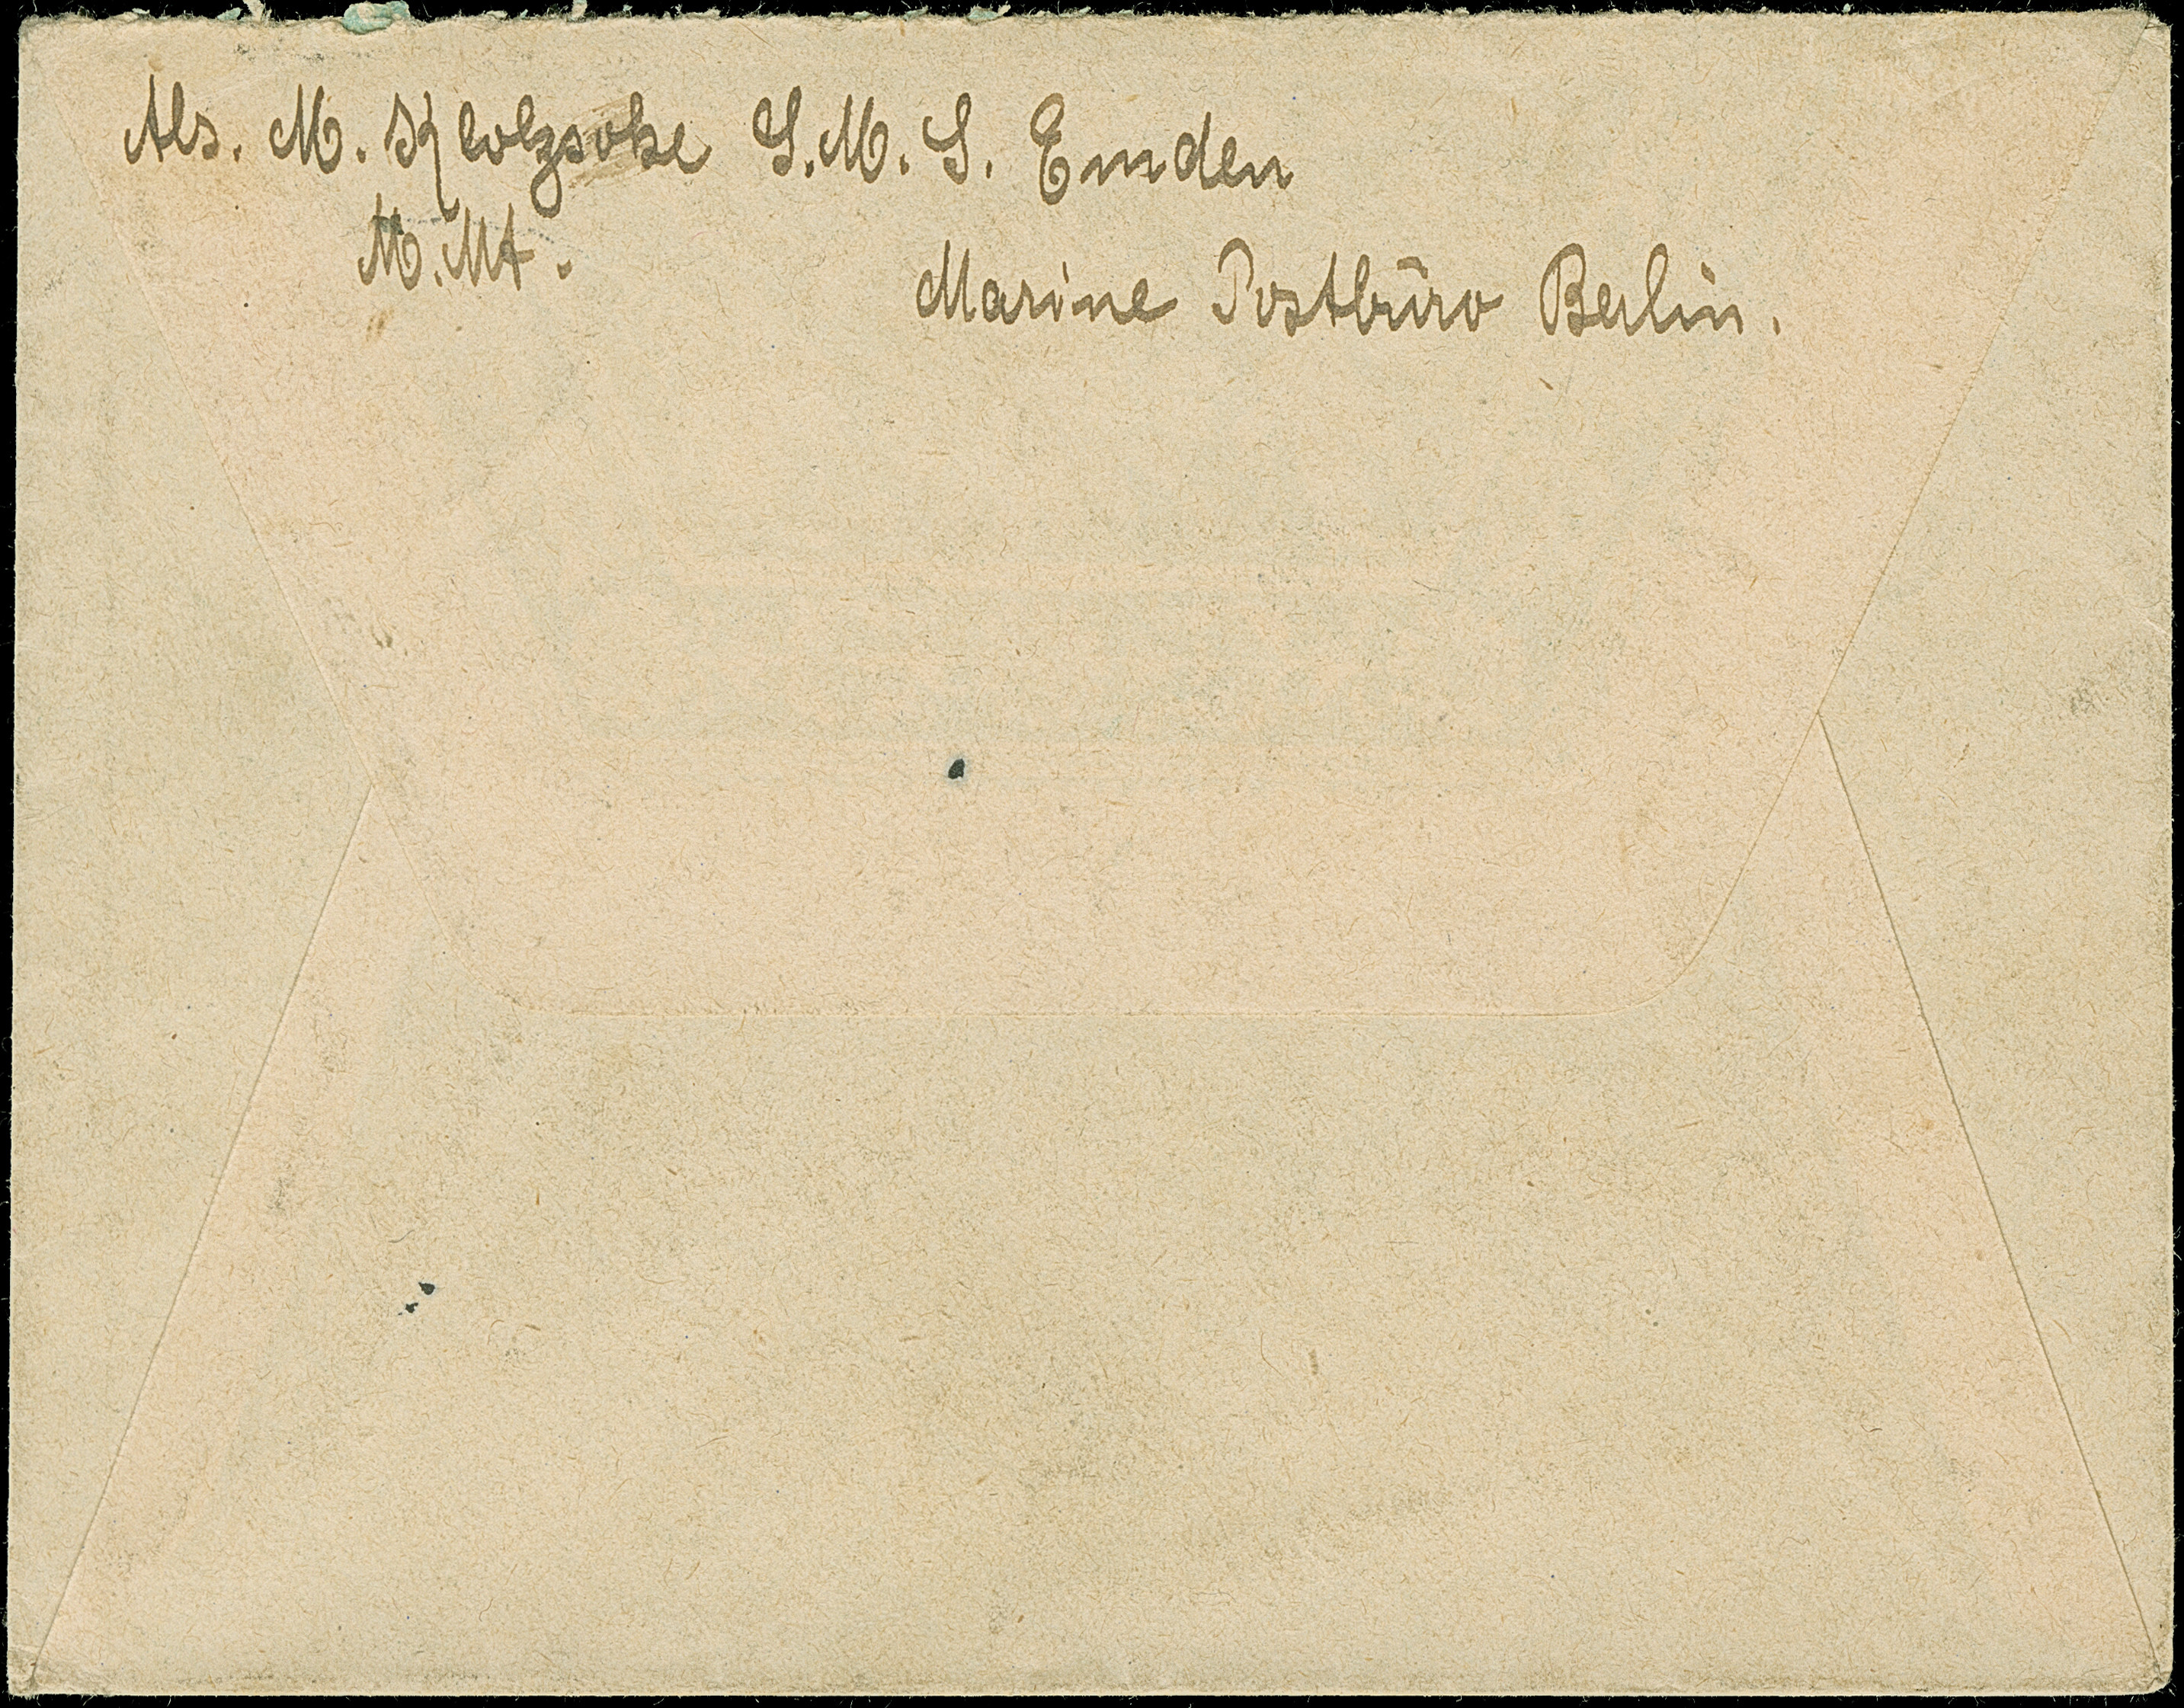 Abs. M. Klolzsche S.M.S. Emden
M.Mt.
Marine Postbüro Berlin.